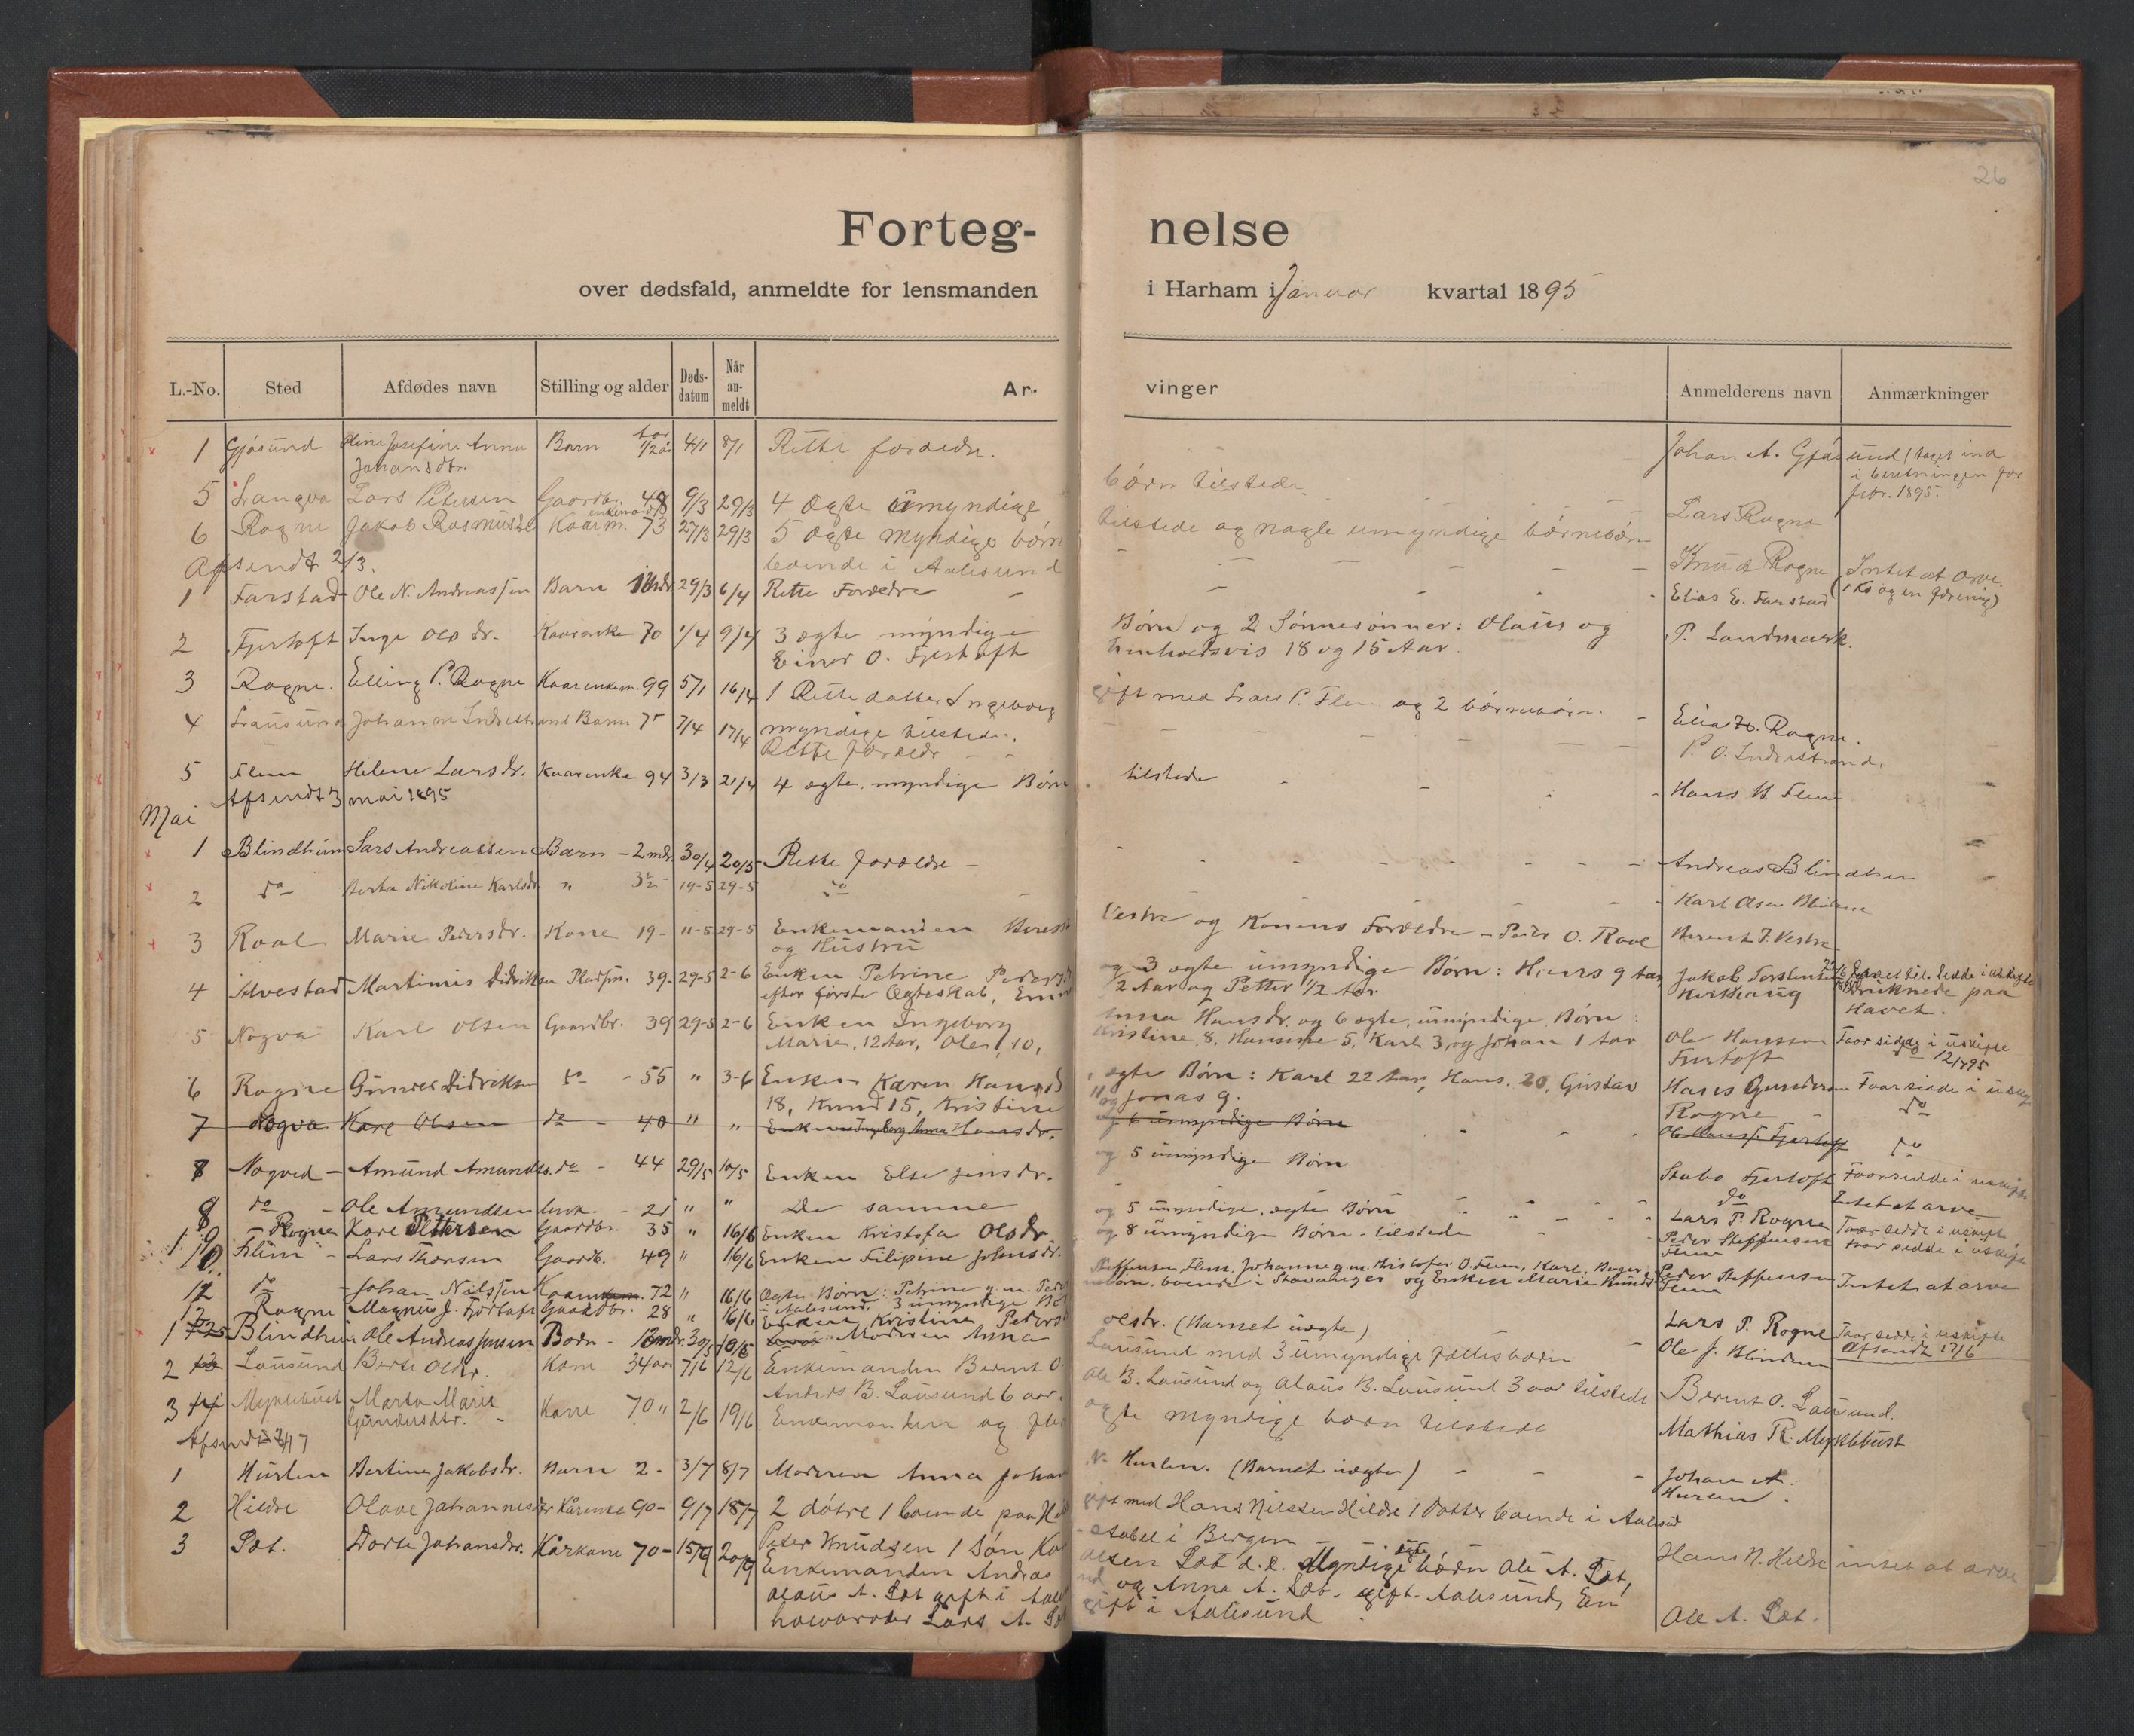 26
Forteg- nelse
over dødsfald, anmeldte for lensmanden i Harham i Januar kvartal 1895
L.-No. Sted Afdødes navn Stilling og alder Døds-datum Når an-meldt Ar- vinger Anmelderens navn Anmærkninger
1 Gjøsund Oline Josefine Anna Johansdtr. Barn 1/2 4/1 8/1 Rette forældre. Johan A. Gjøsund (taget ind i beretningen for febr. 1895.
5 Longva Lars Petersen Gaardbr. 48 9/3 29/3 4 ægte umyndige børn tilstede. Lars Rogne
6 Rogne Jakob Rasmussen Kaarm. enkemand 73 27/3 29/3 5 ægte myndige børn tilstede og nogle umyndige børnebørn
boende i Aalesund Knud Rogne Intet at arve.
Afsendt 2/3. (1 Ko og en føring)
1 Farstad Ole N. Andreassen Barn 29/3 6/4 Rette Forældre Elias E. Farstad
2 Fjertoft Inge Olsdr. Kaarenke 70 1/4 9/4 3 ægte myndige Børn og 2 Sønnesønner: Olaus og P. Landmark.
Einer O. Fjertoft henholdsvis 18 og 15 Aar.
3 Rogne. Elling P. Rogne Kaarenkem. 99 5/1 16/4 1 Rette datter Ingeborg gift med Lars P. Flem og 2 børnebørn. Elias H. Rogne.
myndige tilstede.
4 Lausund Johan M. Indrestrand Barn 7/4 17/4 Rette forældr P. O. Indrestrand.
5 Flem Helene Larsdr. Kaarenke 94 3/3 21/4 4 ægte, myndige Børn tilstede Hans H. Flem
Afsendt 3 mai 1895
Mai
1 Blindheim Lars Andreassen Barn - 2 mdr. 30/4 20/5 Rette forældre - Andreas Blindheim
2 do Berta Nikoline Karlsdr " 19-5 29-5 do Karl Olsen Blindheim
3 Roal Marie Pedersdr. Kone 19- 11-5 29-5 Enkemanden Berent Vestre og Konens Forældre - Peder O. Roal Berent J. Vestre
og Hustru
4 Alvestad Martinus Didriksen Pladsm. 39- 29-5 2-6 Enken Petrine Pedersd og 3 ægte umyndige Børn: Hans 9 Aar, Jakob Torstensen druknede paa
efter første Ægteskab, 2 Aar og Petter 1/2 Aar Havet.
5 Nogva Karl Olsen Gaardbr. 39 29-5 2-6 Enken Ingeborg Anna Hansdr. og 6 ægte, umyndige Børn: Ole Hansson Faar sidde i uskifte
Marie, 12 Aar, Ole, 10, Kristine, 8, Hansine 5, Karl 3, og Johan 1 Aar Fjertoft
6 Rogne Gunder Didriksen do - 55 " 3-6 Enken Karen Hansd , ægte Børn: Karl 22 Aar, Hans. 20, Gustav Hans Gundersen Faar sidde i uskifte
18, Knud 15, Kristine 11 og Jonas 9. Rogne do
7 Nogva Karl Olsen do - 40 " " Enken Ingeborg Anna Hansdr. og 6 umyndige Børn Ole Hanss. Fjertoft do
8 Nogved - Amund Amundss. do - 44 29/5 10/5 Enken Else Jensdr. og 5 umyndige Børn Stabo Fjertoft Faar sidde i uskifte
8 do - Ole Amundsen - 21 " " De samme do Intet at arve
9 Rogne Karl Pettersen Gaardbr. 35 " 16/6 Enken Kristofa Olsdr. og 5 umyndige, ægte Børn Lars P. Rogne Faar sidde i uskifte
10 Flem - Lars Thorsen Gaardb. 49 " 16/6 Enken Filipine Johnsdr. og 8 umyndige Børn - tilstede Peder Steffensen Flem Faar sidde i uskifte
12 do - Johan Nilssen Kaarm. 72 " 16/6 Ægte Børn: Petrine g. m. Peder Steffensen Flem, Johanne g. m. Kristofer O. Flem, Karl, Peder Steffensen Flem Intet at arve
i Aalesund, 3 umyndige boende i Stavanger og Enken Marie Knudsd
Rogne Magnus J. Fjørtoft Gaardbr. 28 " 16/6 Enken Kristine Peders olsdr. (Barnet uægte) Lars P. Rogne Faar sidde i uskifte
1 Blindheim Ole Andreas Jensen Barn - 30/5 10/6 Moderen Anna Ole J. Blindheim Afsendt 17/6
2 13 Lausund Berte Olsdr. Kone 34 aar 7/6 12/6 Enkemanden Bernt O. Lausund med 3 umyndige fællesbørn Bernt O. Lausund.
Anders B. Lausund 6 aar. Ole B. Lausund og Olaus B. Lausund 3 aar tilstede
3 14 Myklebust Marta Marie Gundersdtr. - Kone 70 " 2/6 19/6 Enkemanden og ægte myndige børn tilstede Mathias R. Myklebust
Afsendt
1 Hurlen Bertine Jakobsdr. Barn 2 - 3/7 8/7 Moderen Anna Johan N. Hurlen. (Barnet uægte) Johan A. Hurlen.
2 Hildre Olave Johannesdtr Kårenke 90- 9/7 18/7 2 døtre 1 boende paa gift med Hans Nilssen Hildre 1 Datter boende i Aalesund
Peter Knudsen 1 Søn i Bergen Hans N. Hildre intet at arve
3 Sæt. Dorte Johansdr. Kårkone 70 - 15/7 20/7 Enkemanden Andreas Olsen Sæt d. e. Myndige ægte børn Ole A. Sæt,
Olaus A. Sæt gift i og Anna A. Sæt. gift. Aalesund, En Ole A. Sæt.
halvbroder Lars A. gift i Aalesund